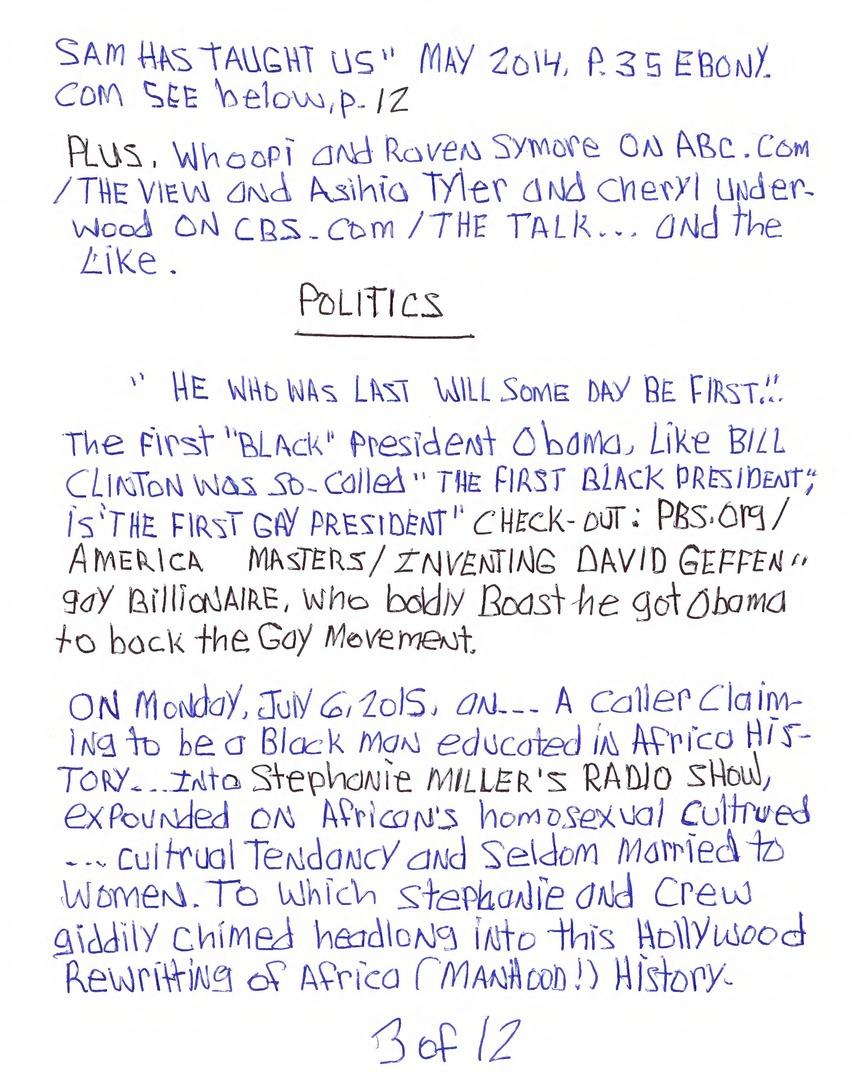 SAM HAS TAUGHT US" MAY 2014, P. 35 EBONY.
COM SEE below, p. 12
PLUS, Whoopi and Raven Symore ON ABC.Com
/THE VIEW and Asihia Tyler and Cheryl Under-
wood ON CBS.Com/THE TALK... and the
Like.
POLITICS
" HE WHO WAS LAST WILL SOME DAY BE FIRST.".
The First "BLACK" President Obama, Like BILL
CLINTON WAS SO-Called "THE FIRST BLACK PRESIDENT",
is "THE FIRST GAY PRESIDENT" CHECK-OUT: PBS.Org/
AMERICA MASTERS/INVENTING DAVID GEFFEN"
gay BillioNAIRE, who boldly Boast he got Obama
to back the Gay Movement.
ON Monday, July 6, 2015, on... A Caller Claim-
ing to be a Black man educated in Africa HIS-
TORY...Into Stephanie MILLER'S RADIO SHOW,
expounded ON African's homosexual Cultrued
... cultrual Tendancy and Seldom Married to
Women. To Which Stephanie and Crew
giddily chimed headlong into this Hollywood
Rewritting of Africa (MANHOOD!) History.
3 of 12